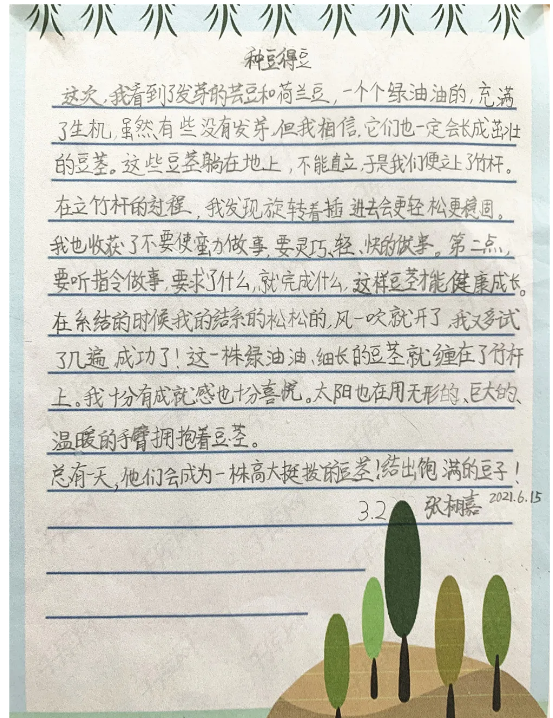 种豆得豆
这次,我看到了发芽的芸豆和荷兰豆,一个个绿油油的,充满
了生机,虽然有些没有发芽,但我相信,它们也一定会长成茁壮
的豆茎。这些豆茎躺在地上,不能直立,于是我们便立上了竹杆。
在立竹杆的过程,我发现旋转着插进去会更轻松更稳固。
我也收获了不要使蛮力做事,要灵巧、轻、快的做事。第二点,
要听指令做事,要求了什么,就完成什么,这样豆茎才能健康成长。
在系结的时候我的结系的松松的,风一吹就开了,我又多试
了几遍,成功了!这一株绿油油、细长的豆茎就缠在了竹杆
上。我十分有成就感也十分喜悦。太阳也在用无形的、巨大的、
温暖的手臂拥抱着豆茎。
总有一天,他们会成为一株高大挺拨的豆茎!结出饱满的豆子!
3.2 张栩嘉 2021.6.15